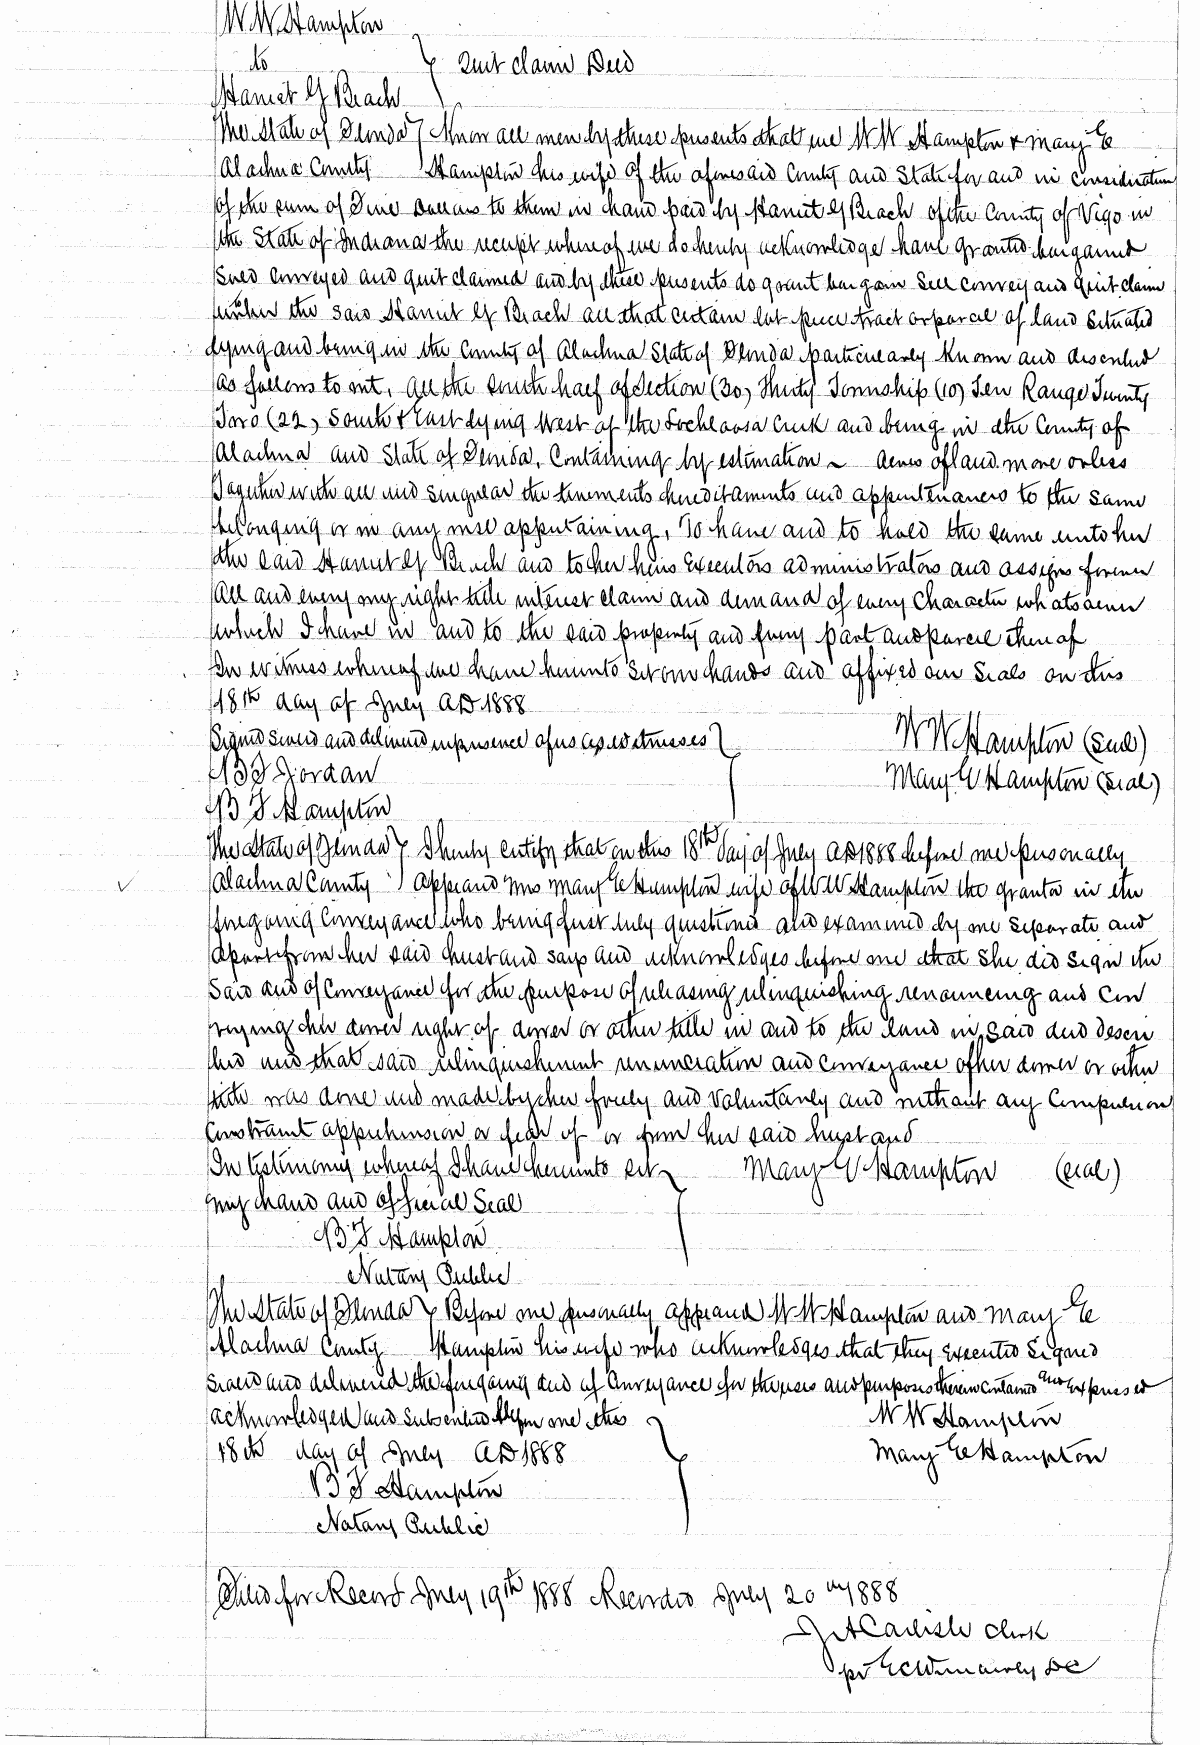 W. W. Hampton
to } Quit Claim Deed
Harriet G Beach
The State of Florida } Know all men by these presents that we W W Hampton & Mary E
Alachua County } Hampton his wife of the aforesaid County and State for and in consideration
of the sum of Five Dollars to them in hand paid by Harriet G Beach of the County of Vigo in
the State of Indiana the receipt whereof we do hereby acknowledge have granted bargained
Sold Conveyed and quit claimed and by these presents do grant bargain Sell Convey and quit claim
unto her the said Harriet G Beach all that certain lot piece tract or parcel of land Situated
lying and being in the County of Alachua State of Florida particularly Known and described
as follows to wit, All the South half of Section (30) Thirty Township (10) Ten Range Twenty
Two (22) South & East lying West of the Lochloosa Creek and being in the County of
Alachua and State of Florida, Containing by estimation ~ Acres of land more or less
Together with all and singular the tenements hereditaments and appurtenances to the same
belonging or in any wise appertaining, To have and to hold the same unto her
the said Harriet G Beach and to her heirs Executors administrators and assigns forever
All and every my right title interest claim and demand of every Character whatsoever
which I have in and to the said property and every part and parcel thereof
In witness whereof we have hereunto Set our hands and affixed our Seals on this
18th day of July AD 1888
Signed Sealed and delivered in presence of us as witnesses } W W Hampton (Seal)
B F Jordan Mary E Hampton (Seal)
B F Hampton
The State of Florida } I hereby certify that on this 18th day of July AD 1888 before me personally
Alachua County } Appeared Mrs Mary E Hampton wife of W W Hampton the grantor in the
foregoing Conveyance who being first duly questioned and examined by me Separate and
Apart from her said husband says and acknowledges before me that She did Sign the
Said deed of Conveyance for the purpose of releasing relinquishing renouncing and Con
veying her dower right of dower or other title in and to the land in Said deed descri
bed and that said relinquishment renunciation and Conveyance of her dower or other
title was done and made by her freely and Voluntarily and without any Compulsion
Constraint apprehension or fear of or from her said husband
In testimony whereof I have hereunto set } Mary E Hampton (Seal)
my hand and official Seal
B F Hampton
Notary Public
The State of Florida } Before me personally appeared W W Hampton and Mary E
Alachua County Hampton his wife who acknowledges that they Executed Signed
Sealed and delivered the foregoing deed of Conveyance for the uses and purposes therein Contained and Expressed
Acknowledged and Subscribed before me this } W W Hampton
18th day of July AD 1888 Mary E Hampton
B F Hampton
Notary Public
Filed for Record July 19th 1888 Recorded July 20 1888
Carlisle Clerk
pr DC